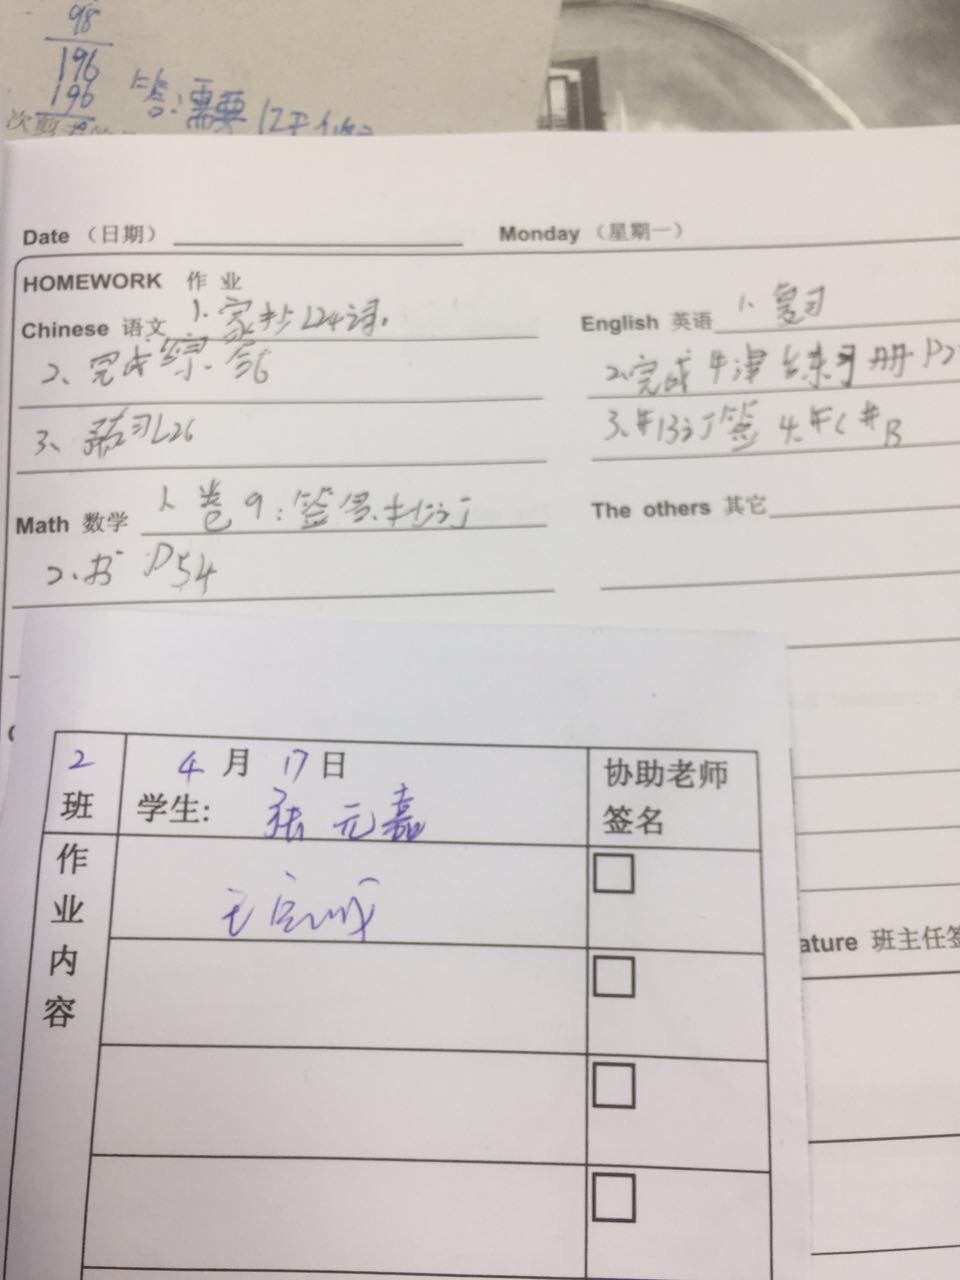 98
196
196
答:需要
次剪
Date （日期）
Monday （星期一）
HOMEWORK 作 业
Chinese 语文 1. 家抄L24词.
2、完成综.练6
3、预习L26
English 英语 1. 复习
2.完成牛津练习册P
3.#13订签 4.#C #B
Math 数学 1. 卷9:签名.订
2.书P54
The others 其它
2班
4月17日
学生: 张元嘉
协助老师
签名
作业内容
已完成
ature 班主任签